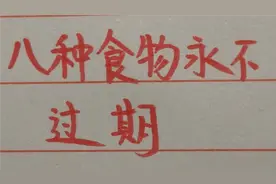 八种食物永不
过期